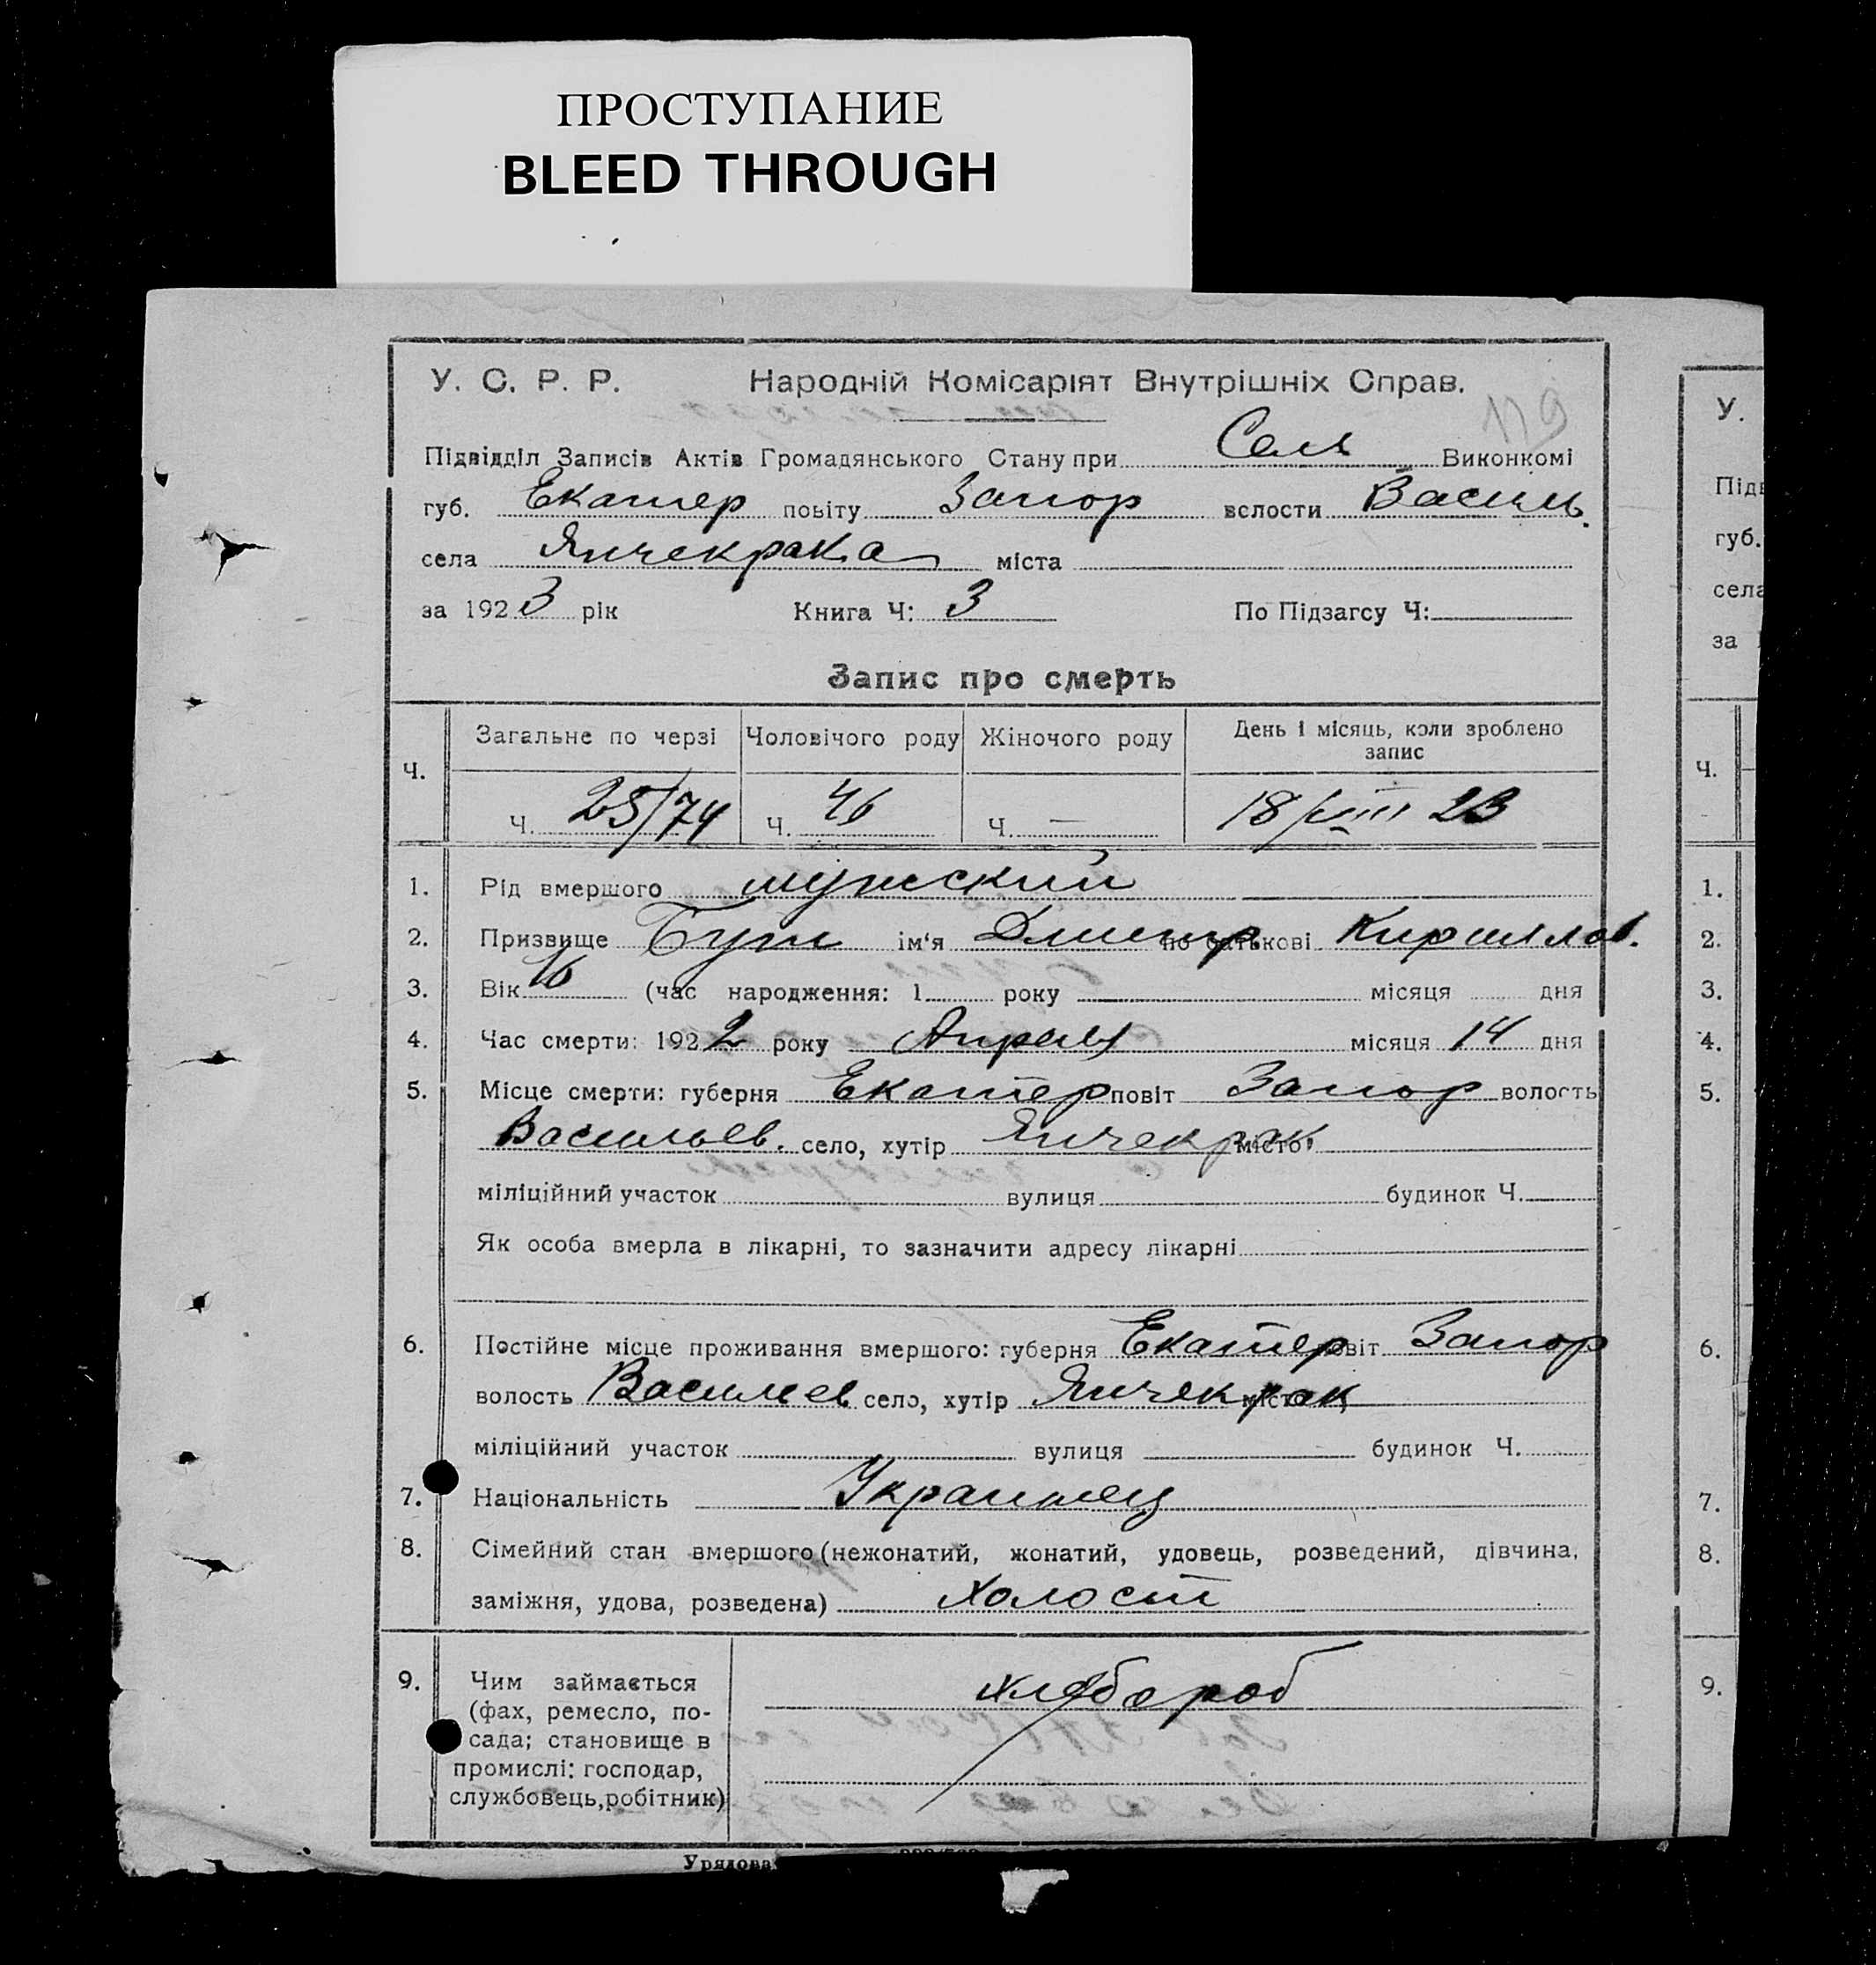 ПРОСТУПАНИЕ
BLEED THROUGH
У. С. Р. Р. Народній Комісаріят Внутрішніх Справ.
119
Підвідділ Записів Актів Громадянського Стану при Селя Виконкомі
губ. Екатер повіту Запор вслости Василь.
села Янчекрака міста
за 1923 рік Книга Ч: 3 По Підзагсу Ч:
Запис про смерть
Ч. Загальне по черзі Чоловічого роду Жіночого роду День і місяць, коли зроблено запис
Ч. 25/74 Ч. 46 Ч. — 18/VIII 23
1. Рід вмершого мужский
2. Призвище Бут ім'я Дмитр по батькові Кириллов.
3. Вік 16 (час народження: 1 року місяця дня
4. Час смерти: 1922 року Апреля місяця 14 дня
5. Місце смерти: губерня Екатер повіт Запор волость
Васильев. село, хутір Янчекрак місто
міліційний участок вулиця будинок Ч.
Як особа вмерла в лікарні, то зазначити адресу лікарні
6. Постійне місце проживання вмершого: губерня Екатер повіт Запор
волость Васильев село, хутір Янчекрак місто
міліційний участок вулиця будинок Ч.
7. Національність Украинец
8. Сімейний стан вмершого (нежонатий, жонатий, удовець, розведений, дівчина,
заміжня, удова, розведена) Холост
9. Чим займається хлебороб
(фах, ремесло, по-
сада; становище в
промислі: господар,
службовець, робітник)
Урядова
У.
Підв
губ.
села
за 1
Ч.
1.
2.
3.
4.
5.
6.
7.
8.
9.